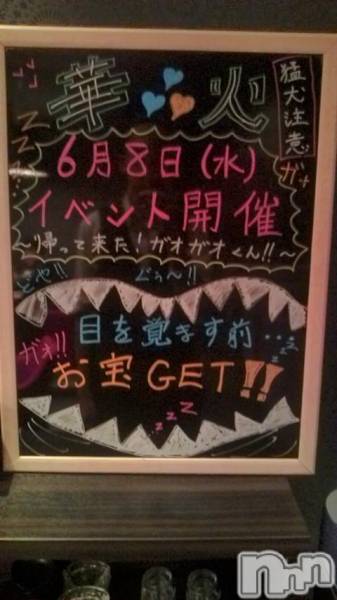 華火
猛犬注意
6月8日(水)
イベント開催
〜帰って来た!ガオガオくん!!〜
ぐぅ〜!!
目を覚ます前…
ガオ!!
お宝GET!!
zzz
nnn